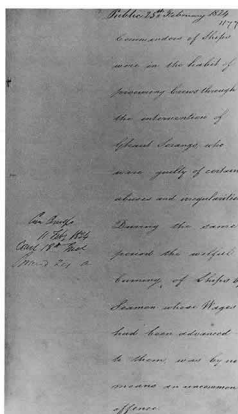 Public 25th February 1824
Commanders of Ships
were in the habit of
procuring Crews through
the intervention of
Ghaut Serangs who
were guilty of certain
abuses and irregularities
During the same
period the wilful
burning of Ships by
Seamen whose Wages
had been advanced
to them was by no
means an uncommon
offence
11 Feb 1824
18th